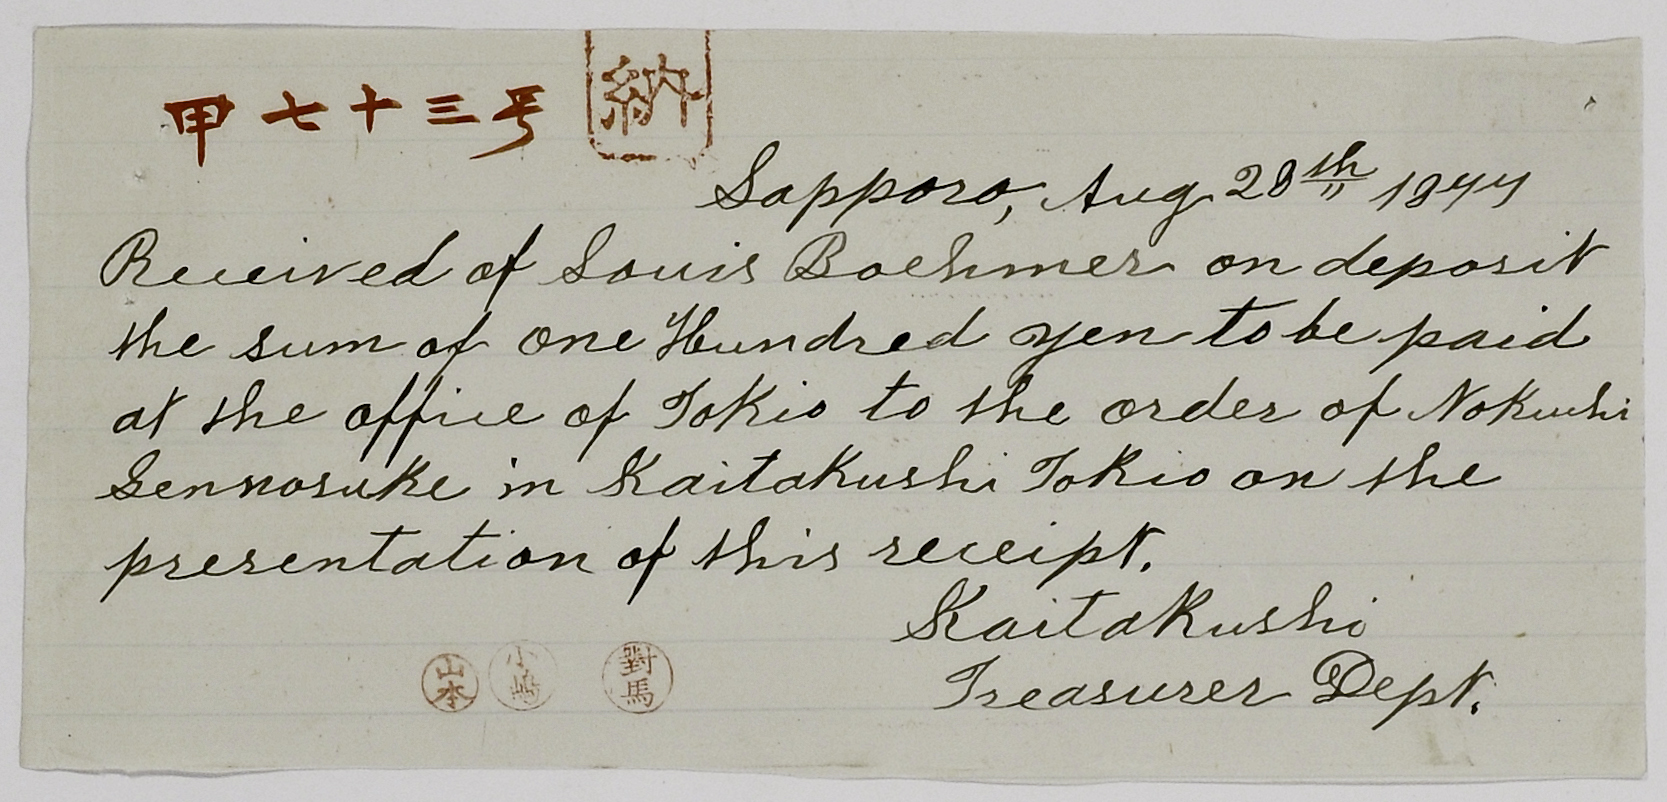 甲七十三号
納
Sapporo, Aug. 28th 1877
Received of Louis Boehmer on deposit
the sum of one Hundred yen to be paid
at the office of Tokio to the order of Nokuchi
Gennosuke in Kaitakushi Tokio on the
presentation of this receipt.
Kaitakushi
Treasurer Dept.
山本 小嶋 對馬